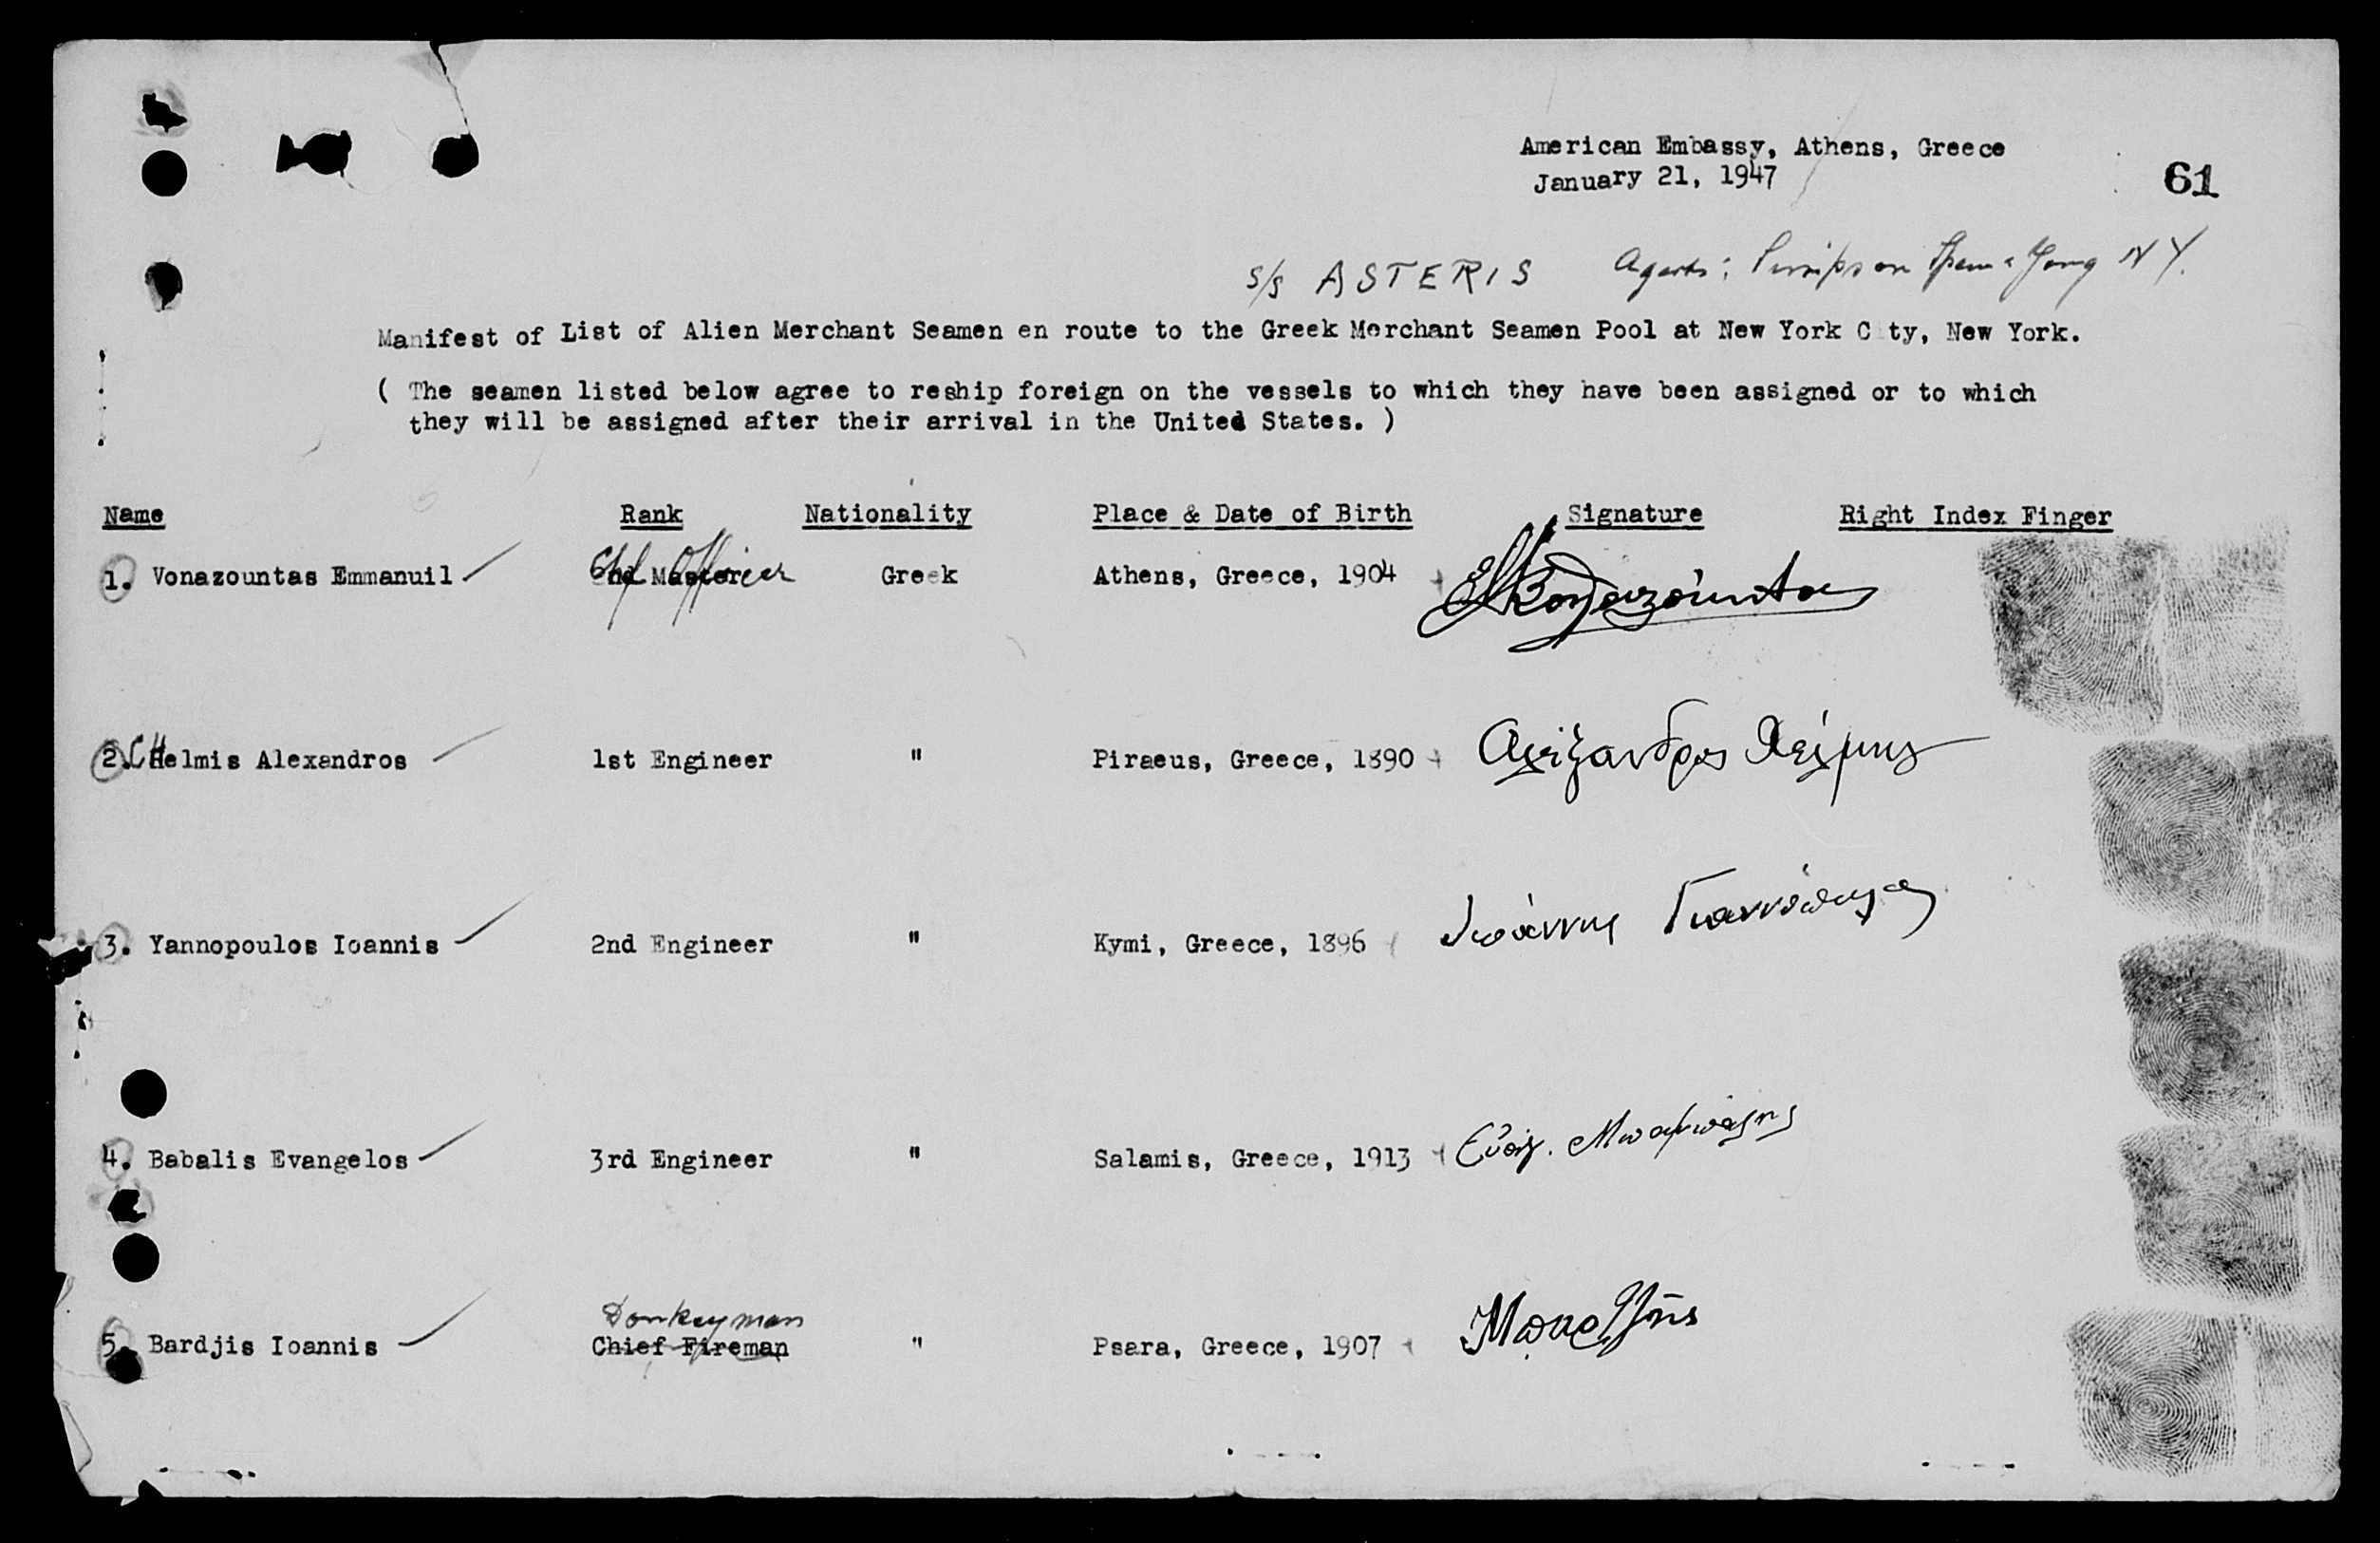 American Embassy, Athens, Greece
January 21, 1947
61
S/S ASTERIS Agents: Simpson Spence & Young N Y.
Manifest of List of Alien Merchant Seamen en route to the Greek Merchant Seamen Pool at New York C ty, New York.
( The seamen listed below agree to reship foreign on the vessels to which they have been assigned or to which
they will be assigned after their arrival in the United States. )
Name Rank Nationality Place & Date of Birth Signature Right Index Finger
Chf Officer
1. Vonazountas Emmanuil 2nd Master Greek Athens, Greece, 1904 Βοναζούντας
2. CHelmis Alexandros 1st Engineer " Piraeus, Greece, 1890 Αλέξανδρος Χέλμης
3. Yannopoulos Ioannis 2nd Engineer " Kymi, Greece, 1896 Ιωάννης Γιαννόπουλος
4. Babalis Evangelos 3rd Engineer " Salamis, Greece, 1913 Εὐάγ. Μπαμπάλης
Donkeyman
5. Bardjis Ioannis Chief Fireman " Psara, Greece, 1907